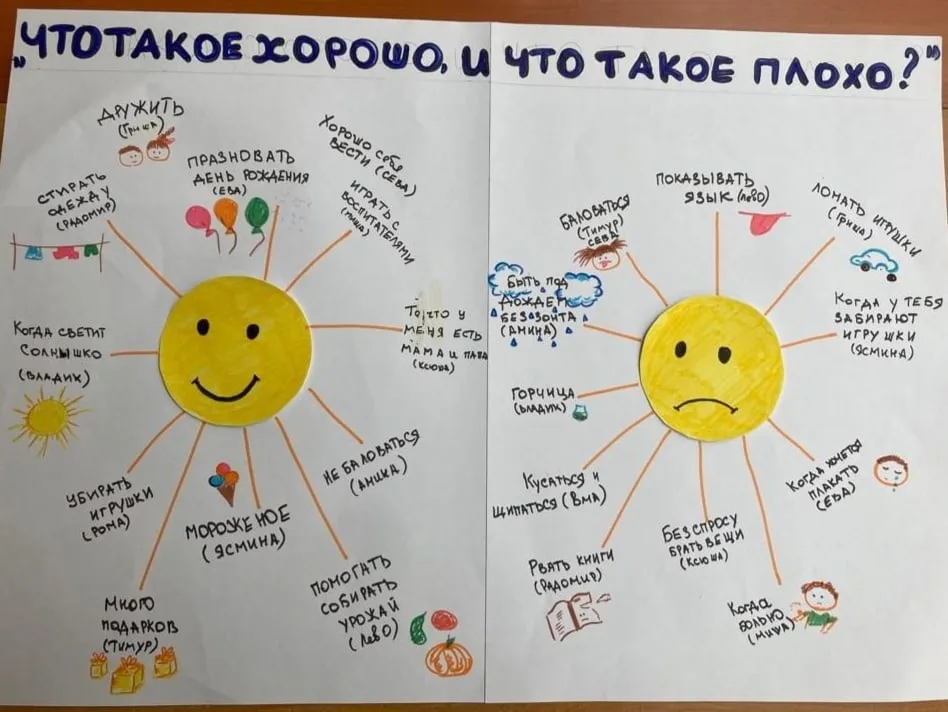 „ЧТО ТАКОЕ ХОРОШО, И ЧТО ТАКОЕ ПЛОХО?"
ДРУЖИТЬ
(ГРИША)
ПРАЗНОВАТЬ
ДЕНЬ РОЖДЕНИЯ
(ЕВА)
ХОРОШО СЕБЯ
ВЕСТИ (СЕВА)
СТИРАТЬ
ОДЕЖДУ
(РАДОМИР)
ИГРАТЬ С
ВОСПИТАТЕЛЯМИ
КОГДА СВЕТИТ
СОЛНЫШКО
(ВЛАДИК)
То, что у
МЕНЯ ЕСТЬ
МАМА И ПАПА
(КСЮША)
УБИРАТЬ
ИГРУШКИ
(РОМА)
МОРОЖЕНОЕ
(ЯСМИНА)
НЕ БАЛОВАТЬСЯ
МНОГО
ПОДАРКОВ
(ТИМУР)
ПОМОГАТЬ
СОБИРАТЬ
УРОЖАЙ
(ЛЕВО)
ПОКАЗЫВАТЬ
ЯЗЫК (ЛЕВО)
БАЛОВАТЬСЯ
(ТИМУР
СЕВА)
ЛОМАТЬ ИГРУШКИ
(ГРИША)
БЫТЬ ПОД
ДОЖДЕМ
БЕЗ ЗОНТА
(АМИНА)
КОГДА У ТЕБЯ
ЗАБИРАЮТ
ИГРУШКИ
(ЯСМИНА)
ГОРЧИЦА
(ВЛАДИК)
КУСАТЬСЯ И
ЩИПАТЬСЯ
КОГДА ХОЧЕТСЯ
ПЛАКАТЬ
(ЕВА)
РВАТЬ КНИГИ
(РАДОМИР)
БЕЗ СПРОСУ
БРАТЬ ВЕЩИ
(КСЮША)
КОГДА
БОЛЬНО
(МИША)